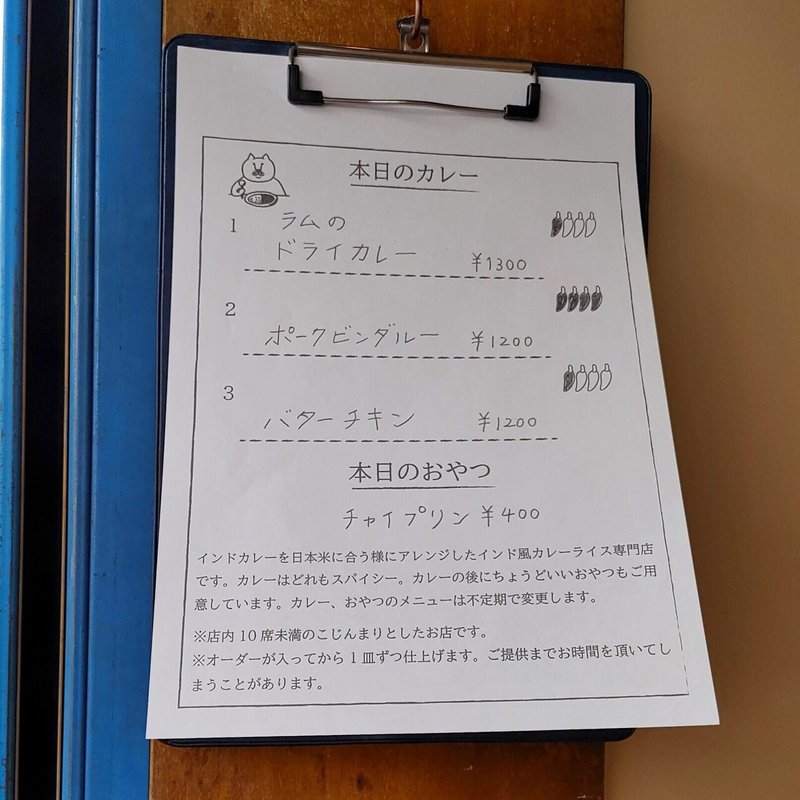 本日のカレー
1 ラムの
ドライカレー ¥1300
2
ポークビンダルー ¥1200
3
バターチキン ¥1200
本日のおやつ
チャイプリン ¥400
インドカレーを日本米に合う様にアレンジしたインド風カレーライス専門店
です。カレーはどれもスパイシー。カレーの後にちょうどいいおやつもご用
意しています。カレー、おやつのメニューは不定期で変更します。
※店内 10 席未満のこじんまりとしたお店です。
※オーダーが入ってから 1 皿ずつ仕上げます。ご提供までお時間を頂いてし
まうことがあります。